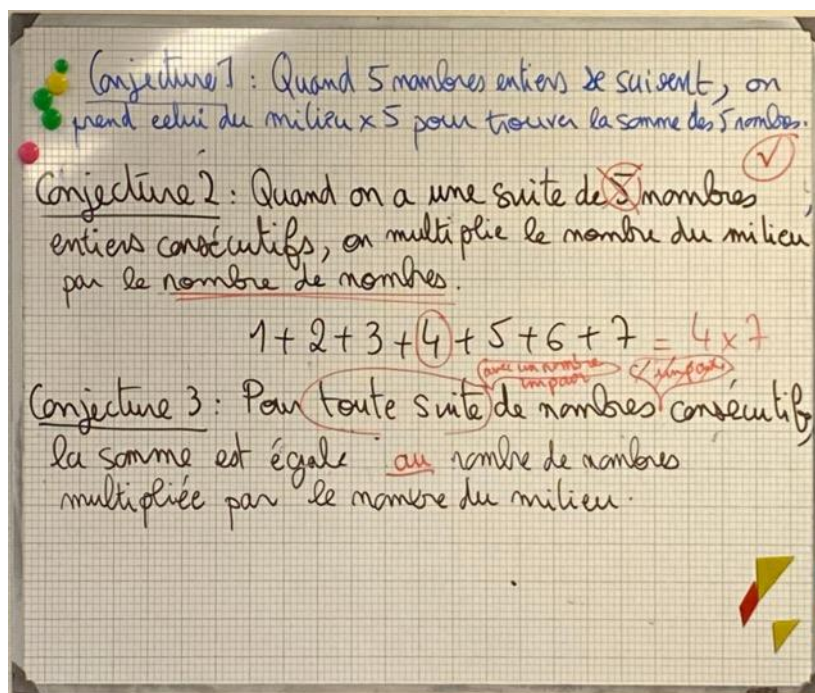 Conjecture 1 : Quand 5 nombres entiers se suivent, on
prend celui du milieu x 5 pour trouver la somme des 5 nombres.
Conjecture 2 : Quand on a une suite de 5 nombres
entiers consécutifs, on multiplie le nombre du milieu
par le nombre de nombres.
1 + 2 + 3 + 4 + 5 + 6 + 7 = 4 x 7
avec un nombre
impair
Conjecture 3 : Pour toute suite de nombres consécutifs,
la somme est égale au nombre de nombres
multipliée par le nombre du milieu.